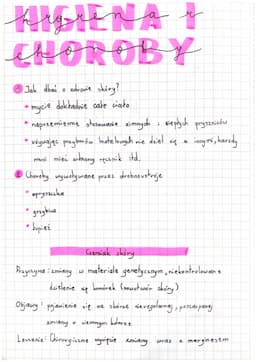 HIGIENA I
higiena i
CHOROBY
choroby
① Jak dbać o zdrowie skóry?
* mycie dokładnie całe ciało
* naprzemienne stosowanie zimnych i ciepłych pryszniców
* używając przyborów toaletowych nie dziel się z innymi, każdy
musi mieć własny ręcznik itd.
② Choroby wywoływane przez drobnoustroje
* opryszczka
* grzybica
* łupież
Czerniak skóry
Przyczyna: zmiany w materiale genetycznym, niekontrolowane
dzielenie się komórek (nowotwór skóry)
Objawy: pojawienie się na skórze nieregularnej,
zmiany o ciemnym kolorze
Leczenie: Chirurgiczne wycięcie zmiany wraz z marginesem